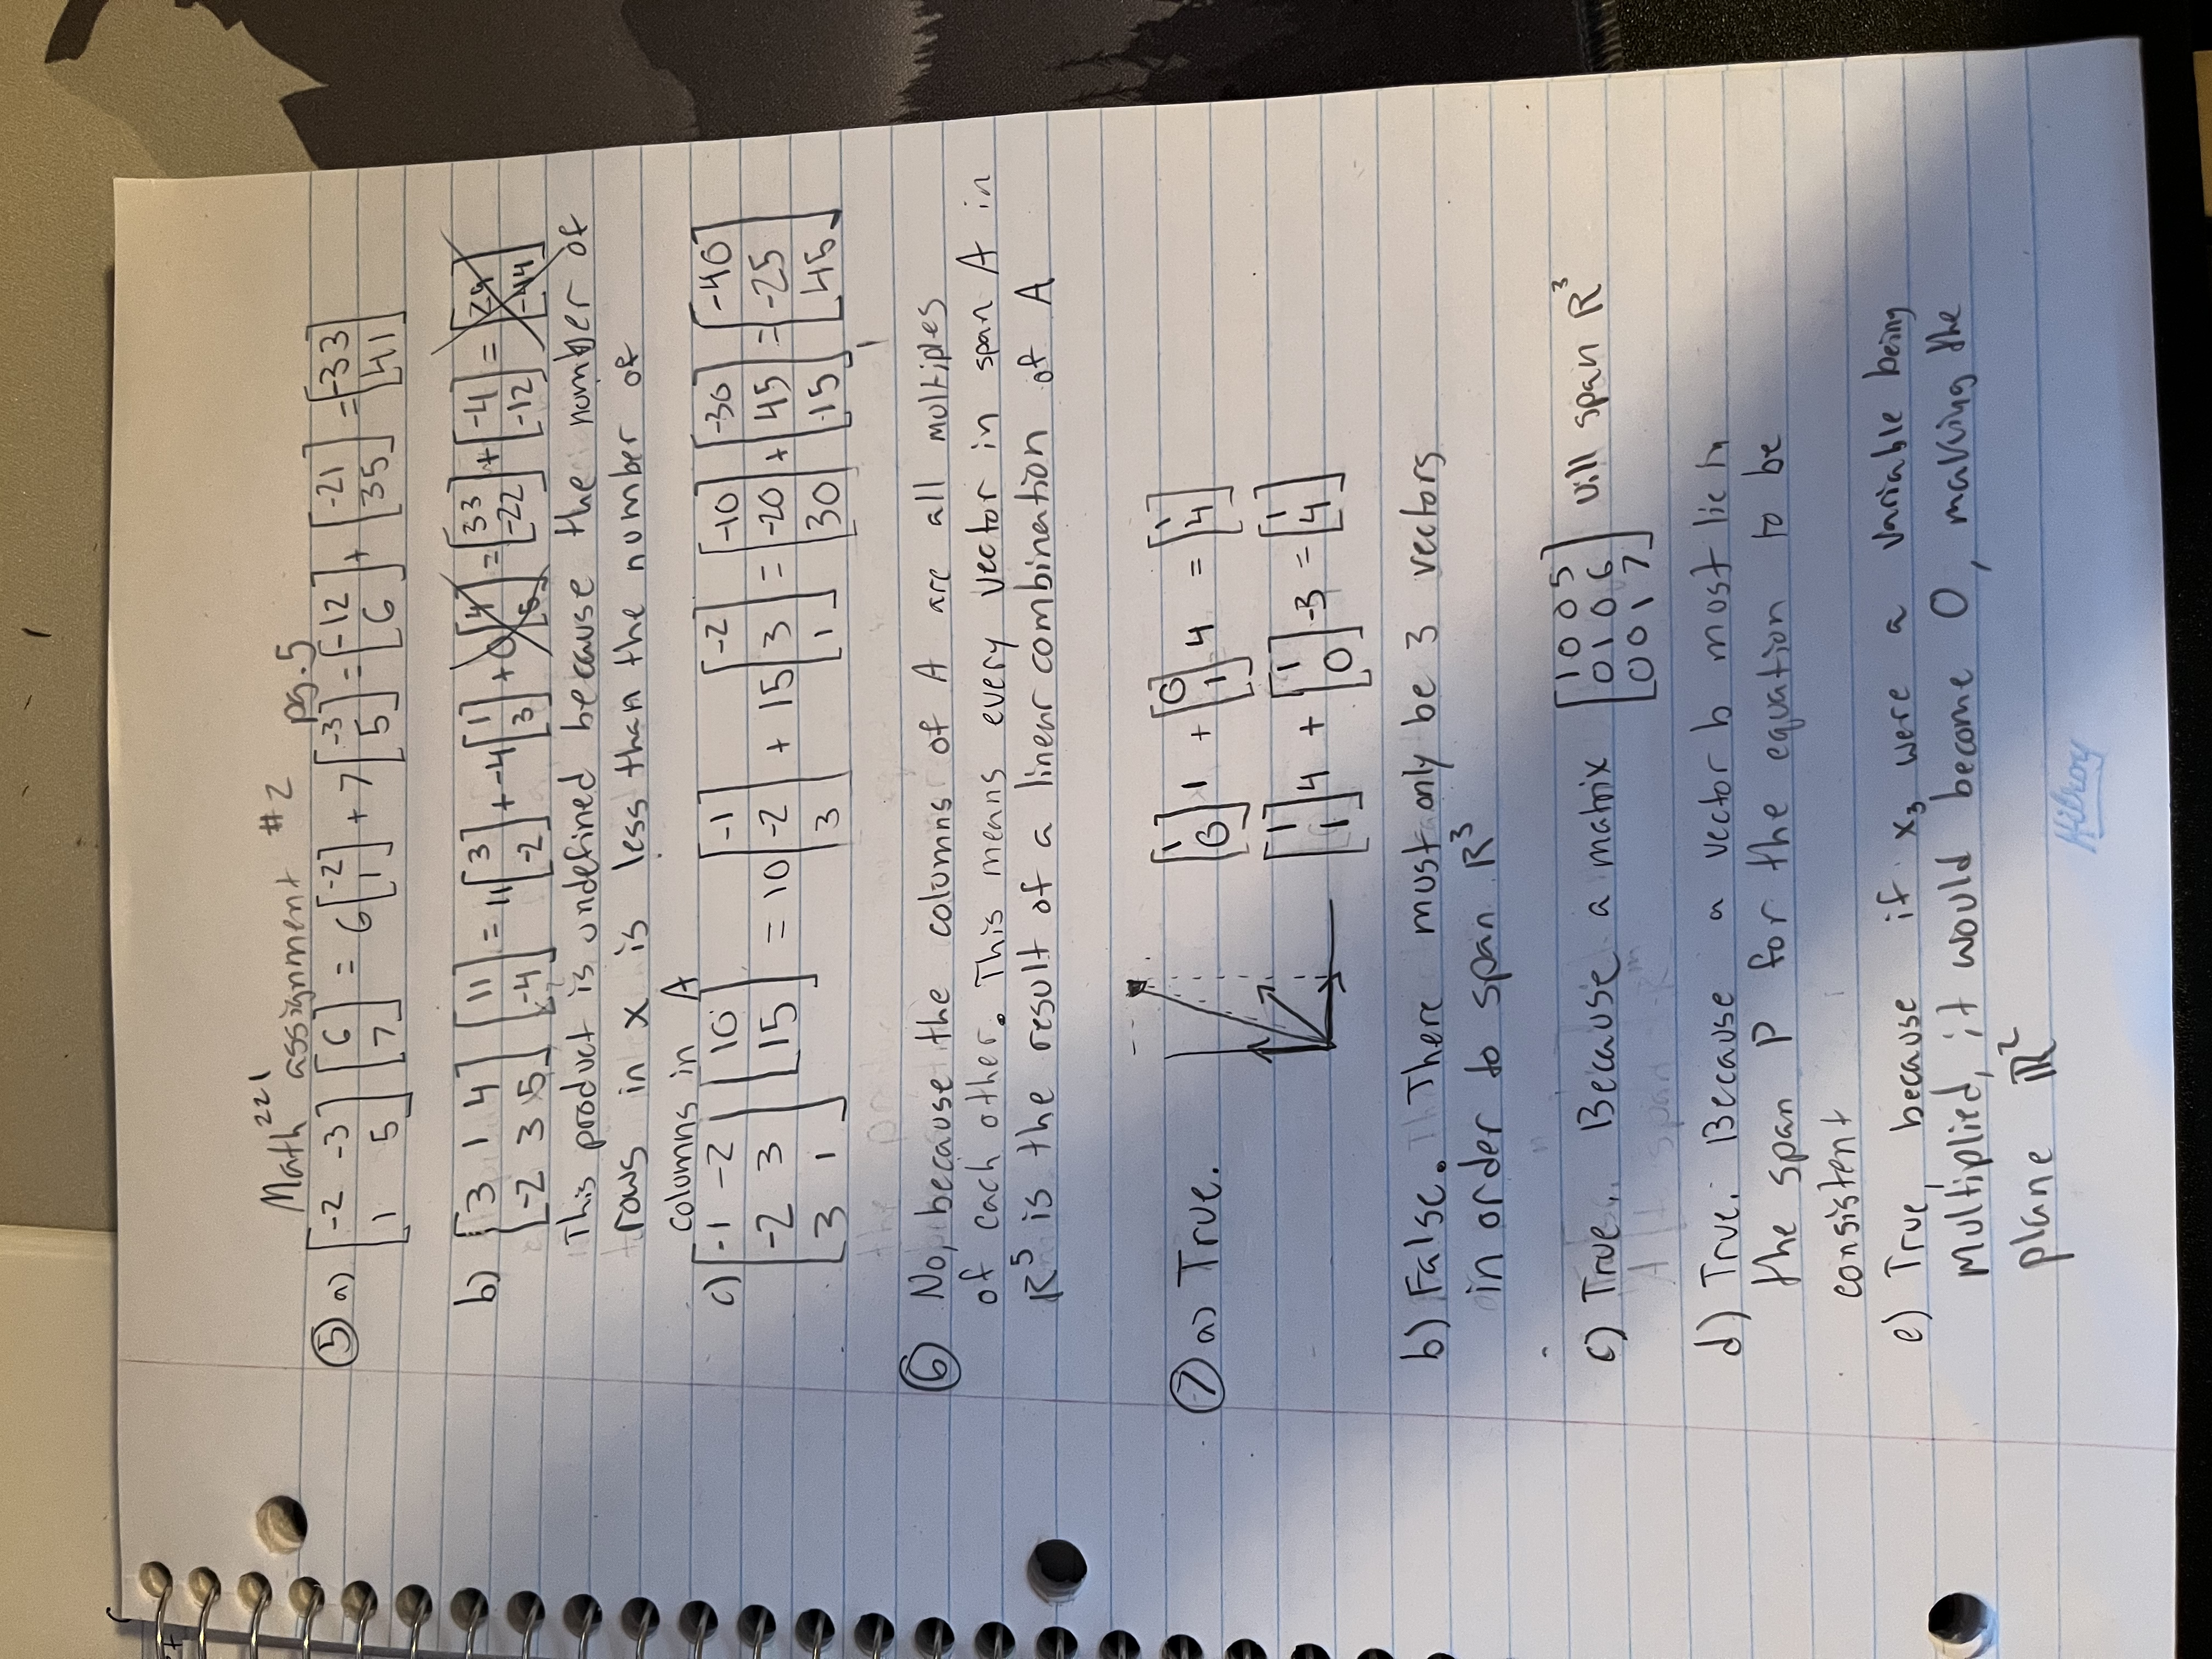 Math 221 assignment #2 pg.5
⑤ a) [-2 -3; 1 5] [6; 7] = 6[-2; 1] + 7[-3; 5] = [-12; 6] + [-21; 35] = [-33; 41]
b) [3 1 4; -2 3 5] [11; -4] = 11[3; -2] + -4[1; 3] + 0[4; 5] = [33; -22] + [-4; -12] = [29; -44]
This product is undefined because the number of
rows in x is less than the number of
columns in A
c) [-1 -2; -2 3; 3 1] [10; 15] = 10[-1; -2; 3] + 15[-2; 3; 1] = [-10; -20; 30] + [-30; 45; 15] = [-40; -25; 45]
⑥ No, because the columns of A are all multiples
of each other. This means every vector in span A in
R⁵ is the result of a linear combination of A
⑦ a) True. [1; 0]1 + [0; 1]4 = [1; 4]
[1; 1]4 + [1; 0]-3 = [1; 4]
b) False. There must only be 3 vectors
in order to span R³
c) True. Because a matrix [1 0 0 5; 0 1 0 6; 0 0 1 7] will span R³
d) True. Because a vector b most lie in
the span P for the equation to be
consistent
e) True, because if x₃ were a variable being
multiplied, it would become 0, making the
plane ℝ²
Hilroy